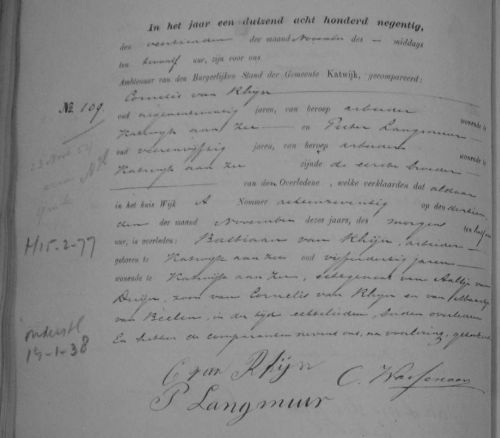 In het jaar een duizend acht honderd negentig,
den veertienden der maand November des middags
ten twaalf ure, zijn voor ons
Ambtenaar van den Burgerlijken Stand der Gemeente Katwijk, gecompareerd:
№. 109. Cornelis van Rhijn
oud jaren, van beroep arbeider wonende te
Katwijk aan Zee en Pieter Langmuur
oud vierenvijftig jaren, van beroep arbeider wonende te
Katwijk aan Zee zijnde de eerste broeder
van den Overledene, welke verklaarden dat aldaar
in het huis Wijk A Nommer op den dertien
den der maand November dezes jaars, des morgens ten half
ure, is overleden: Bastiaan van Rhijn, arbeider
geboren te Katwijk aan Zee oud jaren
wonende te Katwijk aan Zee, echtgenoot van van
Duijn, zoon van Cornelis van Rhijn en van
van Beelen, in der tijd echtelieden, beiden overleden
En hebben de comparanten nevens ons, na voorlezing, geteekend
H15-2-77
14-1-38
C van Rhijn
P Langmuur
C. Wassenaar